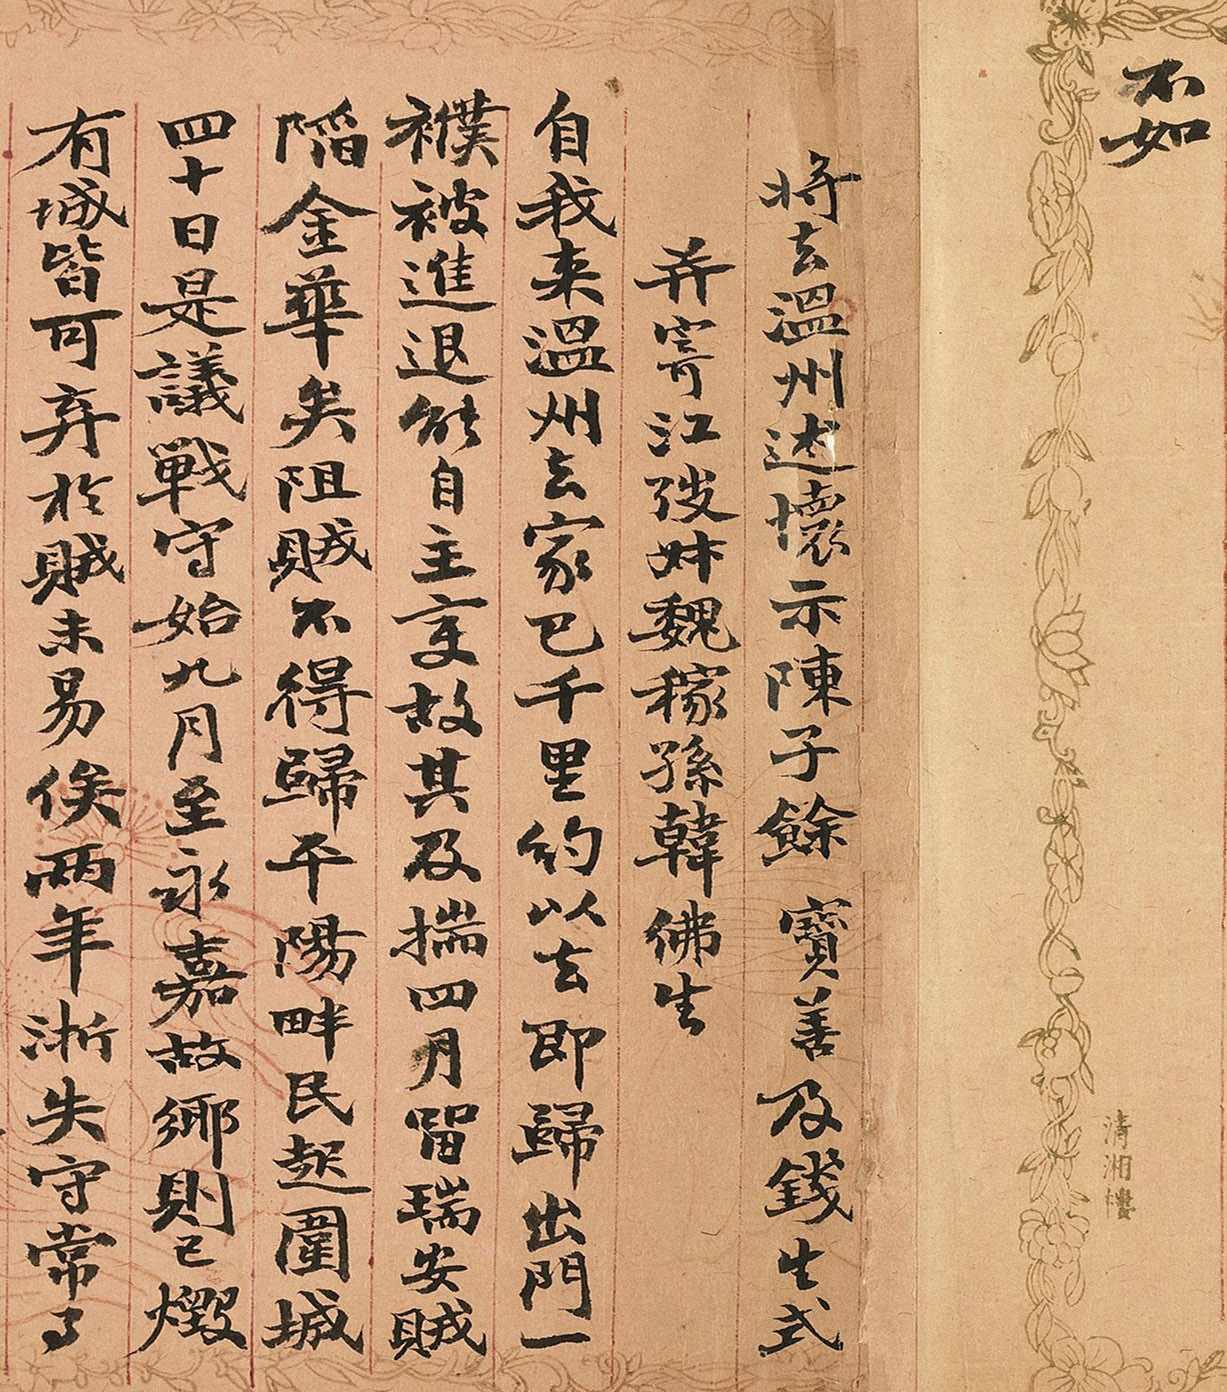 不如
清湘樓
将去溫州述懷示陳子餘 寶善及錢生式
并寄江弢叔魏稼孫韓佛生
自我来溫州去家已千里約以去即歸出門一
襆被進退能自主变故其及揣四月留瑞安賊
陷金華矣阻賊不得歸平陽畔民起圍城
四十日是議戦守始九月至永嘉故鄉則已燬
有城皆可弃於賊未易俟兩年浙失守常了